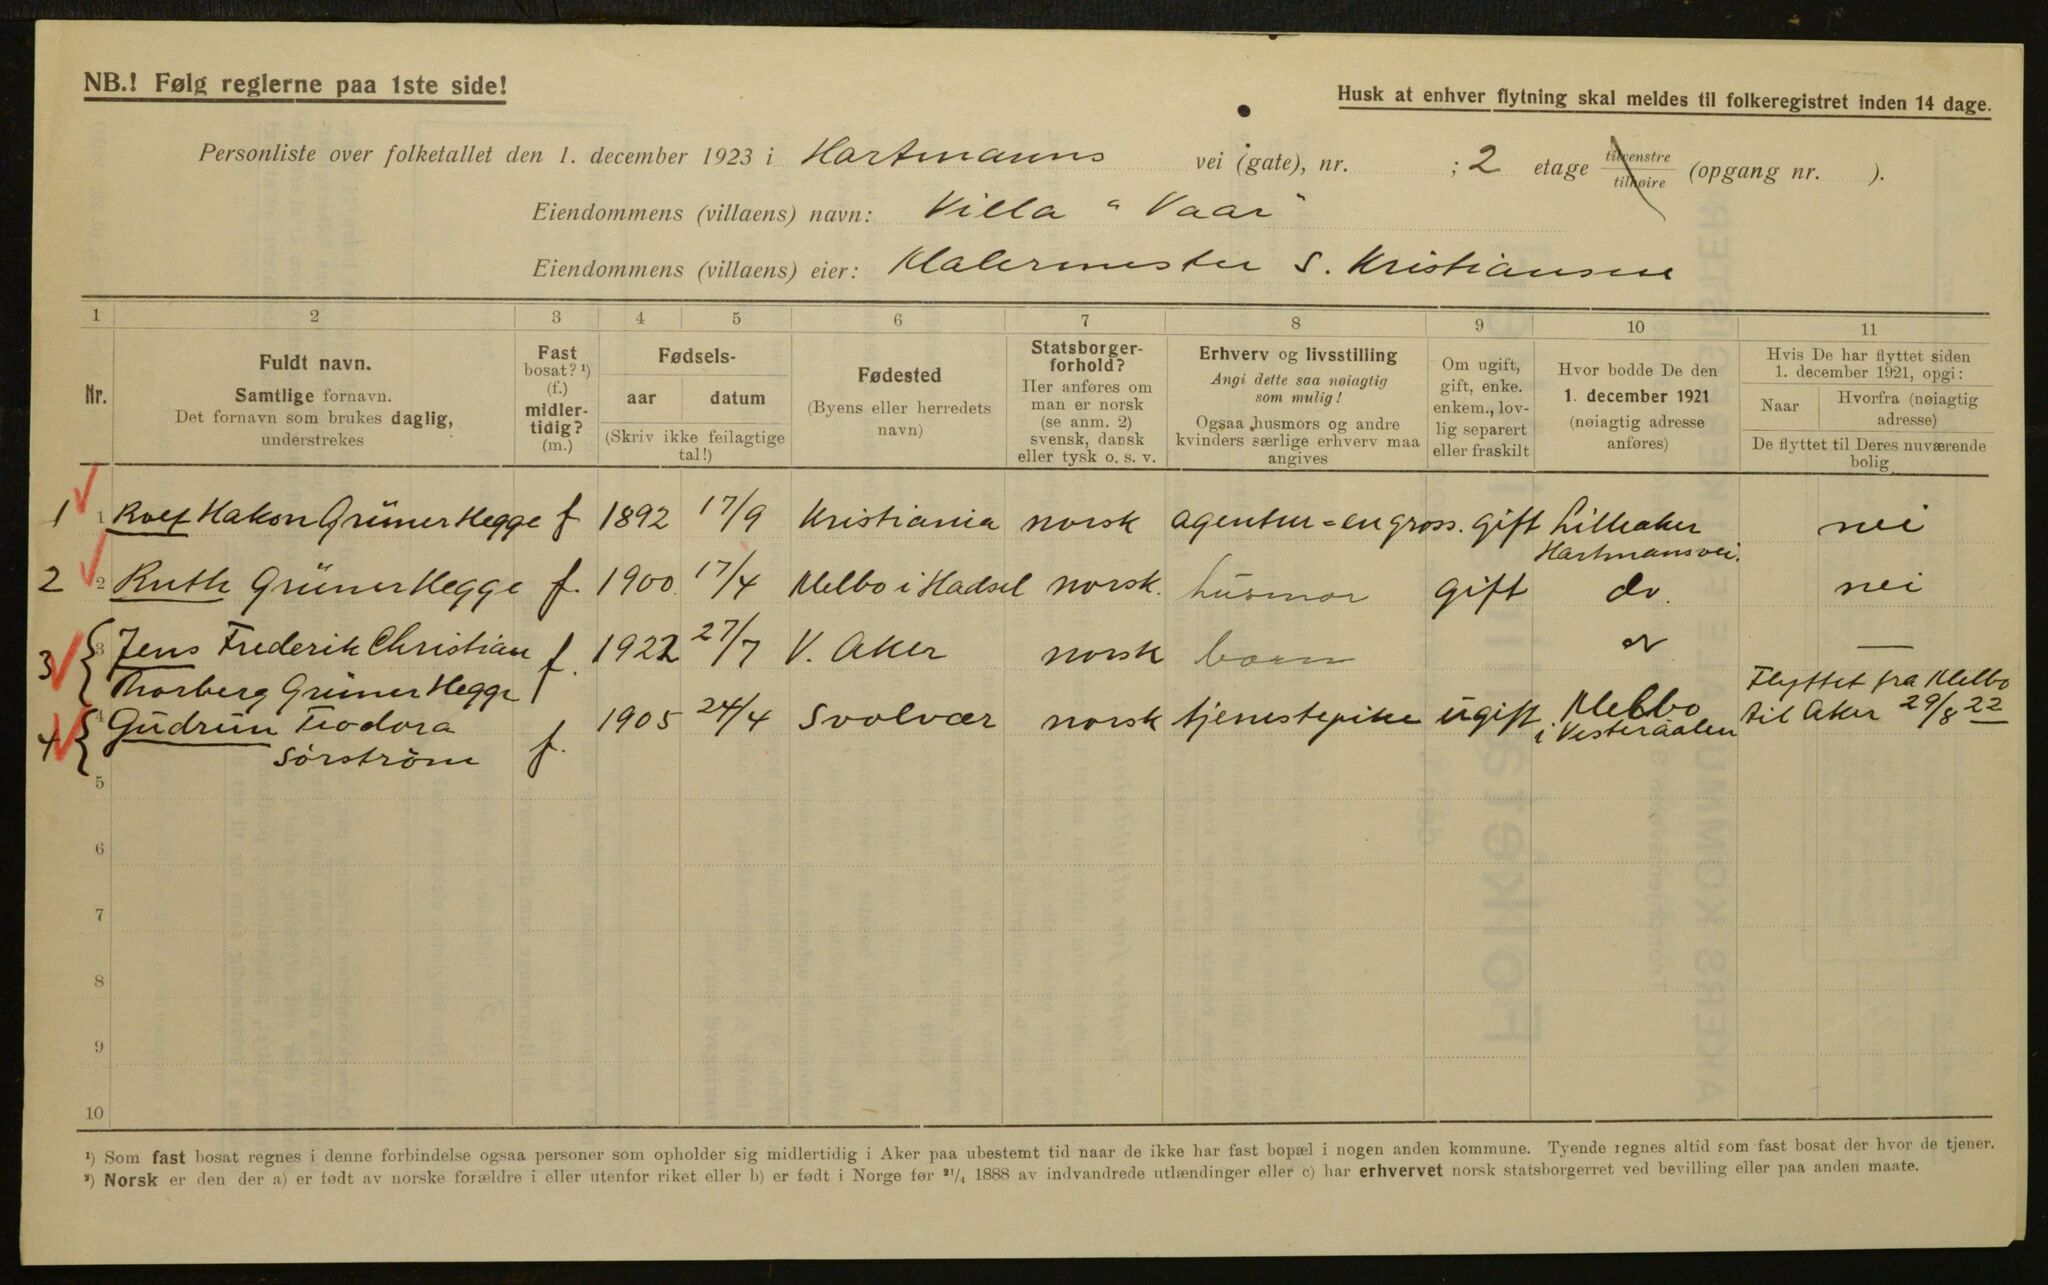 NB.! Følg reglerne paa 1ste side!
Husk at enhver flytning skal meldes til folkeregistret inden 14 dage.
Personliste over folketallet den 1. december 1923 i Hartmanns vei (gate), nr. ; 2 etage tilvenstre / tilhøire (opgang nr. ).
Eiendommens (villaens) navn: Villa "Vaar"
Eiendommens (villaens) eier: Malermester S. Kristiansen
1 2 3 4 5 6 7 8 9 10 11
Nr.
Fuldt navn.
Samtlige fornavn.
Det fornavn som brukes daglig,
understrekes
Fast
bosat? ¹)
(f.)
midler-
tidig?
(m.)
Fødsels-
aar datum
(Skriv ikke feilagtige
tal!)
Fødested
(Byens eller herredets
navn)
Statsborger-
forhold?
Her anføres om
man er norsk
(se anm. 2)
svensk, dansk
eller tysk o. s. v.
Erhverv og livsstilling
Angi dette saa nøiagtig
som mulig!
Ogsaa husmors og andre
kvinders særlige erhverv maa
angives
Om ugift,
gift, enke.
enkem., lov-
lig separert
eller fraskilt
Hvor bodde De den
1. december 1921
(nøiagtig adresse
anføres)
Hvis De har flyttet siden
1. december 1921, opgi:
Naar Hvorfra (nøiagtig
adresse)
De flyttet til Deres nuværende
bolig
1 1 Rolf Hakon Grüner Hegge f 1892 17/9 Kristiania norsk agentur = en gross. gift Lilleaker nei
Hartmansvei.
2 2 Ruth Grüner Hegge f. 1900. 17/4 Melbo i Hadsel norsk. husmor gift do. nei
3 3 Jens Frederik Christian f. 1922 27/7 V. Aker norsk barn —
Thorberg Grüner Hegge
4 4 Gudrun Teodora f. 1905 24/4 Svolvær norsk tjenestepike ugift Melbo Flyttet fra Melbo
Sørstrøm i Vesteraalen til Aker 29/8 22
5
6
7
8
9
10
¹) Som fast bosat regnes i denne forbindelse ogsaa personer som opholder sig midlertidig i Aker paa ubestemt tid naar de ikke har fast bopæl i nogen anden kommune. Tyende regnes altid som fast bosat der hvor de tjener.
²) Norsk er den der a) er født av norske forældre i eller utenfor riket eller b) er født i Norge før ²¹/₄ 1888 av indvandrede utlændinger eller c) har erhvervet norsk statsborgerret ved bevilling eller paa anden maate.